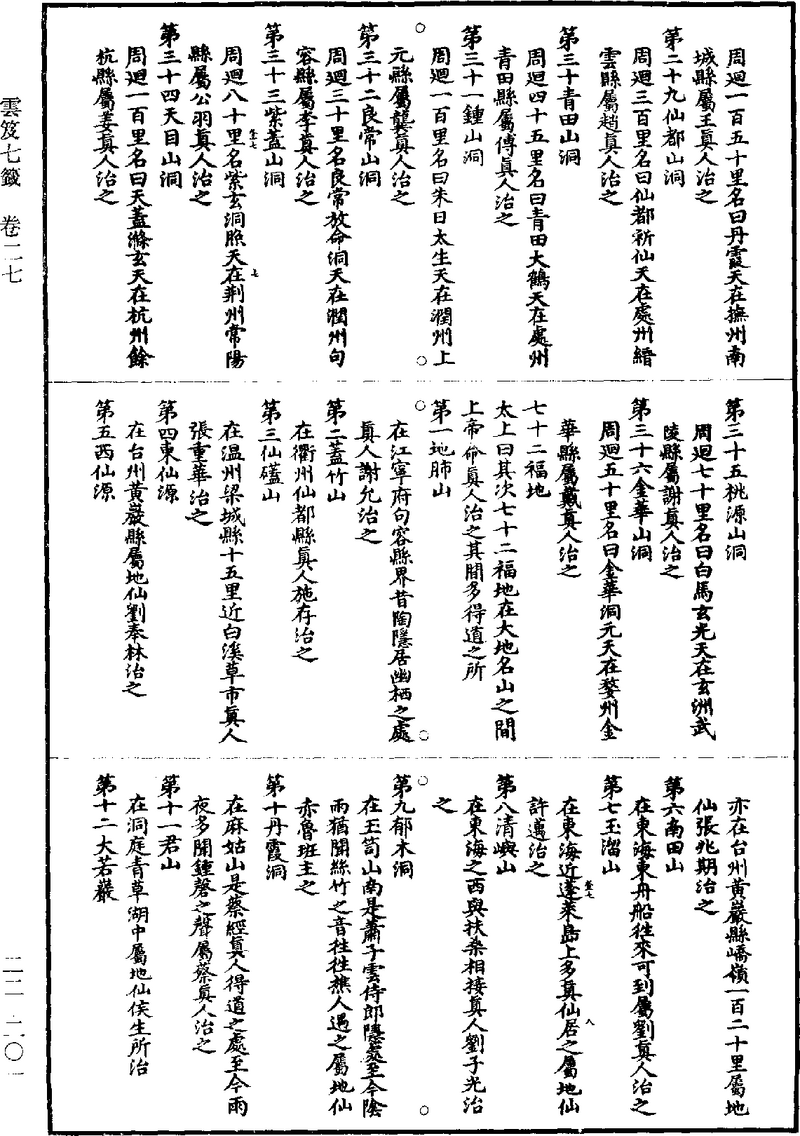 雲笈七籤 卷二七
二二・六〇一
周迴一百五十里名曰丹霞天在撫州南
城縣屬王真人治之
第二十九仙都山洞
周迴三百里名曰仙都祈仙天在處州縉
雲縣屬趙真人治之
第三十青田山洞
周迴四十五里名曰青田大鶴天在處州
青田縣屬傅真人治之
第三十一鍾山洞
周迴一百里名曰朱日太生天在潤州上
元縣屬龔真人治之
第三十二良常山洞
周迴三十里名良常放命洞天在潤州句
容縣屬李真人治之
第三十三紫蓋山洞
周迴八十里名紫玄洞照天在荆州常陽
縣屬公羽真人治之
第三十四天目山洞
周迴一百里名曰天蓋滌玄天在杭州餘
杭縣屬姜真人治之
第三十五桃源山洞
周迴七十里名曰白馬玄光天在玄洲武
陵縣屬謝真人治之
第三十六金華山洞
周迴五十里名曰金華洞元天在婺州金
華縣屬戴真人治之
七十二福地
太上曰其次七十二福地在大地名山之間
上帝命真人治之其間多得道之所
第一地肺山
在江寧府句容縣界昔陶隱居幽栖之處
真人謝允治之
第二蓋竹山
在衢州仙都縣真人施存治之
第三仙磕山
在温州梁城縣十五里近白溪草市真人
張重華治之
第四東仙源
在台州黃巖縣屬地仙劉奉林治之
第五西仙源
亦在台州黃巖縣嶠嶺一百二十里屬地
仙張兆期治之
第六南田山
在東海東舟船往來可到屬劉真人治之
第七玉溜山
在東海近蓬萊島上多真仙居之屬地仙
許邁治之
第八清嶼山
在東海之西與扶桑相接真人劉子光治
之
第九郁木洞
在玉笥山南是蕭子雲侍郎隱處至今陰
雨猶聞絲竹之音往往樵人遇之屬地仙
赤魯班主之
第十丹霞洞
在麻姑山是蔡經真人得道之處至今雨
夜多聞鍾磬之聲屬蔡真人治之
第十一君山
在洞庭青草湖中屬地仙侯生所治
第十二大若巖